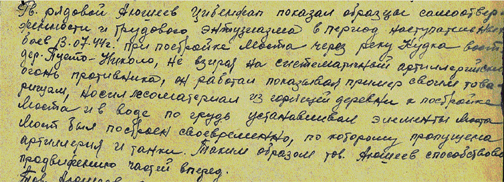 Гв. рядовой Анюшеев Цивенжап показал образцы самоотвер
женности и трудового энтузиазма в период наступательных
боев 13.07.44г. при постройке моста через реку Вудка вост
дер. Пусто-Никола, не взирая на систематический артиллерийский
огонь противника, он работал показывая пример своим това
рищам, носил лесоматериал из горящей деревни к постройке
моста и в воде по грудь устанавливал элементы моста
Мост был построен своевременно, по которому пропущена
артиллерия и танки. Таким образом тов. Анюшеев способствовал
продвижению частей вперед.
Тов. Анюшеев